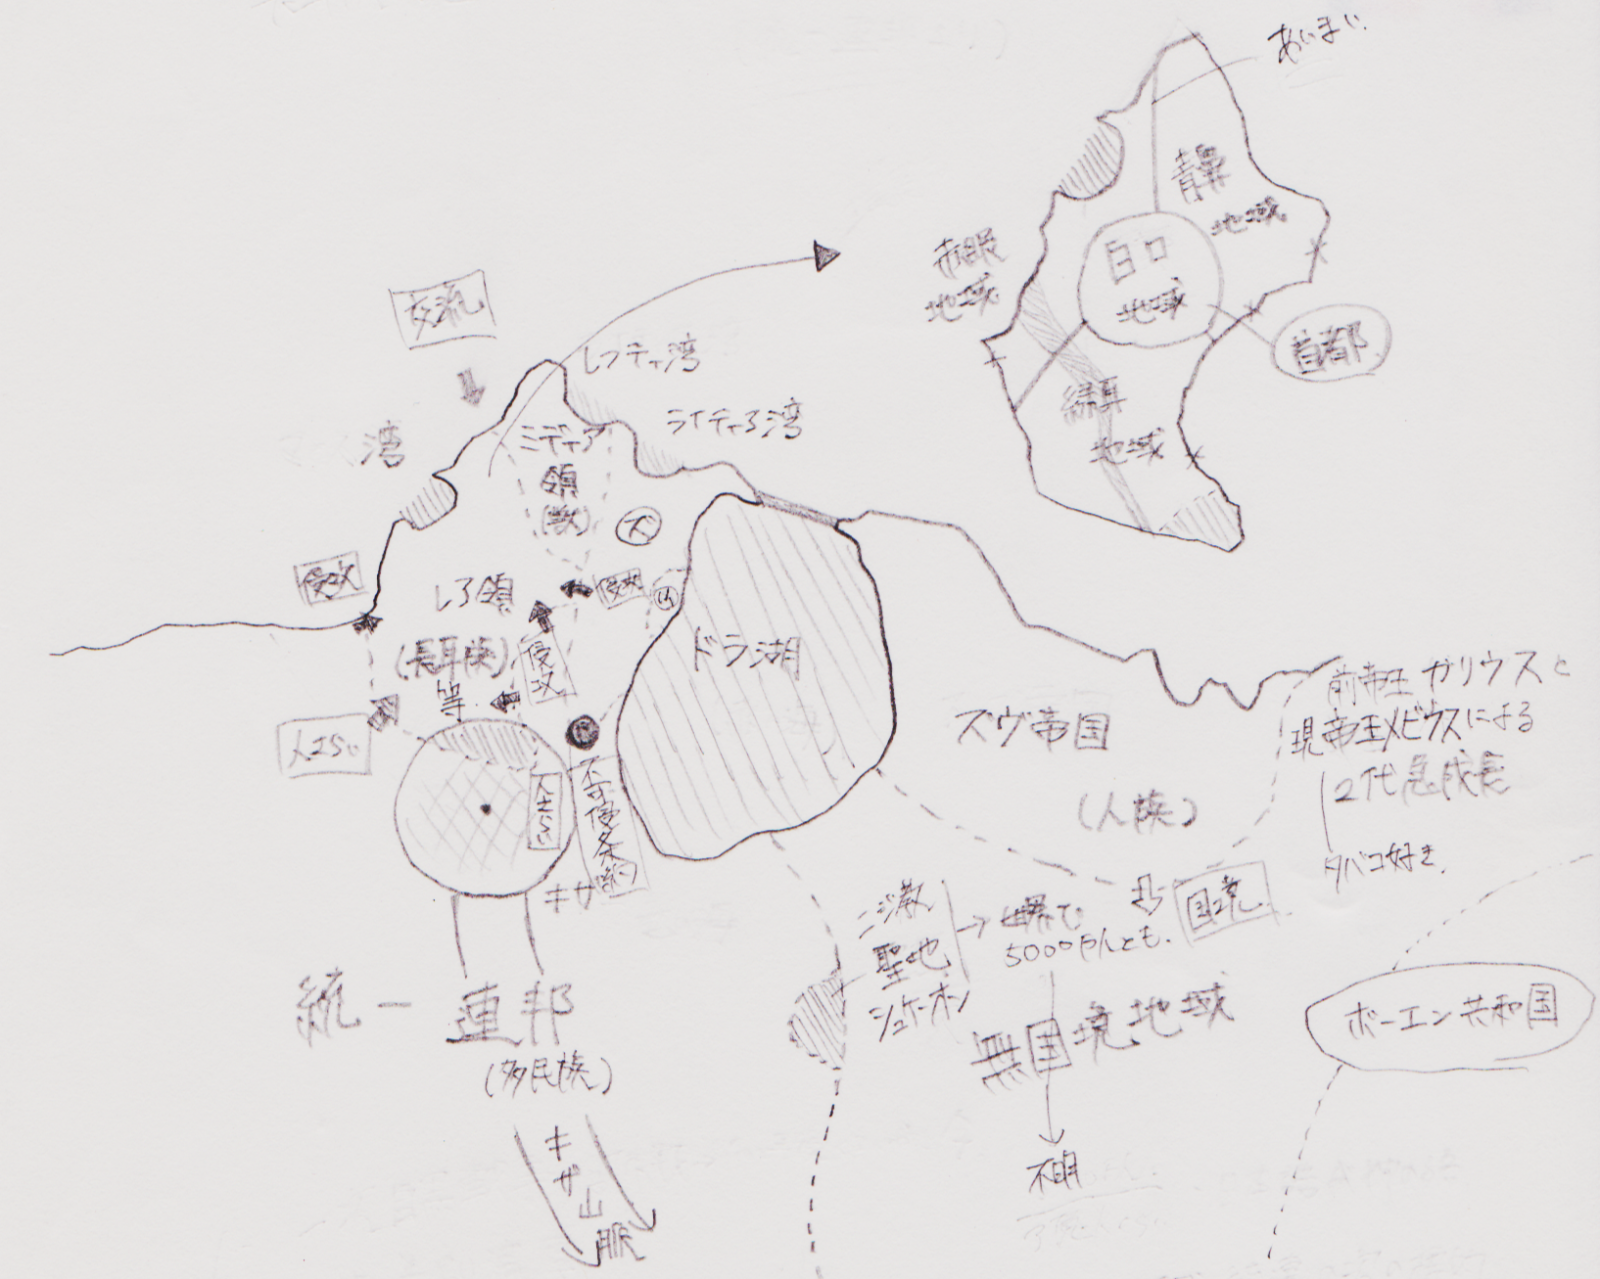 あいまい
青鼻
地域
赤眼
地域
白口
地域
首都
緑耳
地域
交流
レフティア湾
ライティア湾
湾
ミディア
領
(獣)
侵攻
侵攻
レア領
(長耳族)
等
侵攻
ドラ湖
ズヴ帝国
(人族)
前帝王ガリウスと
現帝王メビウスによる
2代急成長
タバコ好き
不可侵条約
キザ
ニジ教
聖地
シュケーオン
世界で
5000万人とも.
国境
無国境地域
不明
ボーエン共和国
統一連邦
(多民族)
キザ山脈